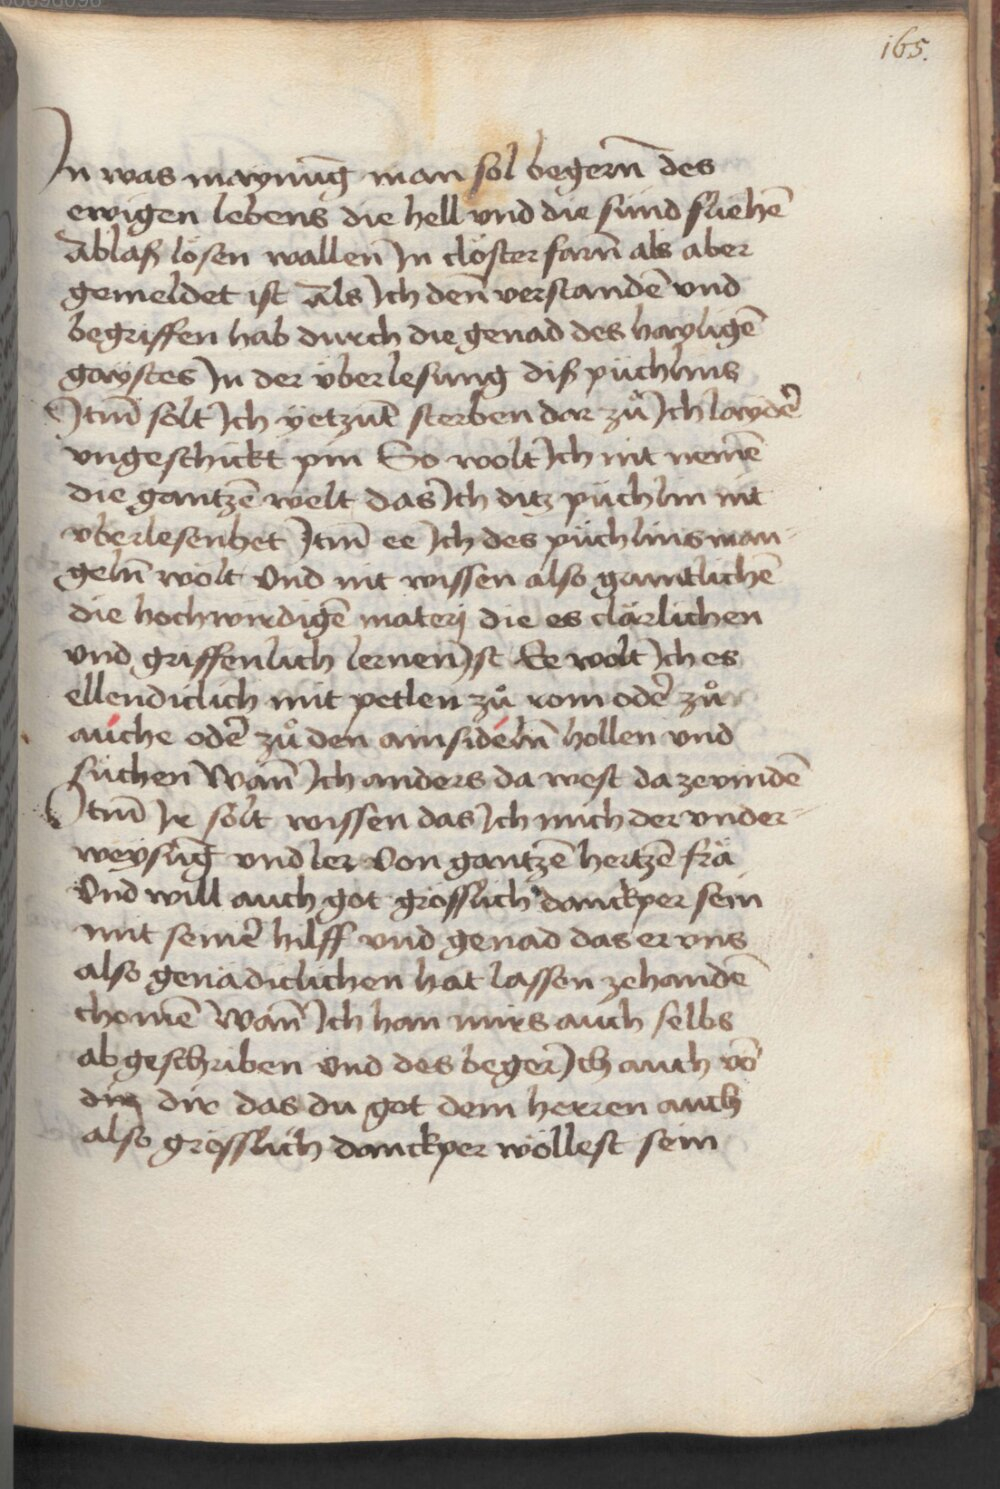 165.
In was maynūg man sol begern̄ des
ewigen lebens die hell vnd die sünd fliehē
ablaß lösen wallen̄ In clöster farn̄ als aber
gemeldet ist als Ich den̄ verstandē vnd
begriffen hab durch die genad des hayligē
gaystes In der v̈berlesung diß püchlins
Itm̄ sölt Ich yetzūt sterben dar zů Ich laydē
vngeschickt pin So wolt Ich nit nemē
die gantzē welt das Ich ditz püchlin nit
vberlesen het Itm̄ ee Ich des püchlins man-
geln̄ wölt Vnd nit wissen also gruntlichē
die hochwirdigē materj die es clärlichen
vnd griffenlich lernen Ist Ee wolt Ich es
ellendiclich mit petlen zů rom odē zů
auche odē zů den ainsideln̄ hollen vnd
suchen Wan̄ Ich anders da west da ze vindē
Itm̄ Ir sölt wissen das Ich mich der vnder-
weysūg vnd ler von gantzē hertzē frä
Vnd will auch got grösslich danckper sein
mit seinē hilff vnd genad das er vns
also genädiclichen hat lassen ze handē
chomē Wan̄ Ich han mirs auch selbs
ab geschriben vnd des beger Ich auch vō
dir dir das du got dem herren auch
also grösslich danckper wöllest sein